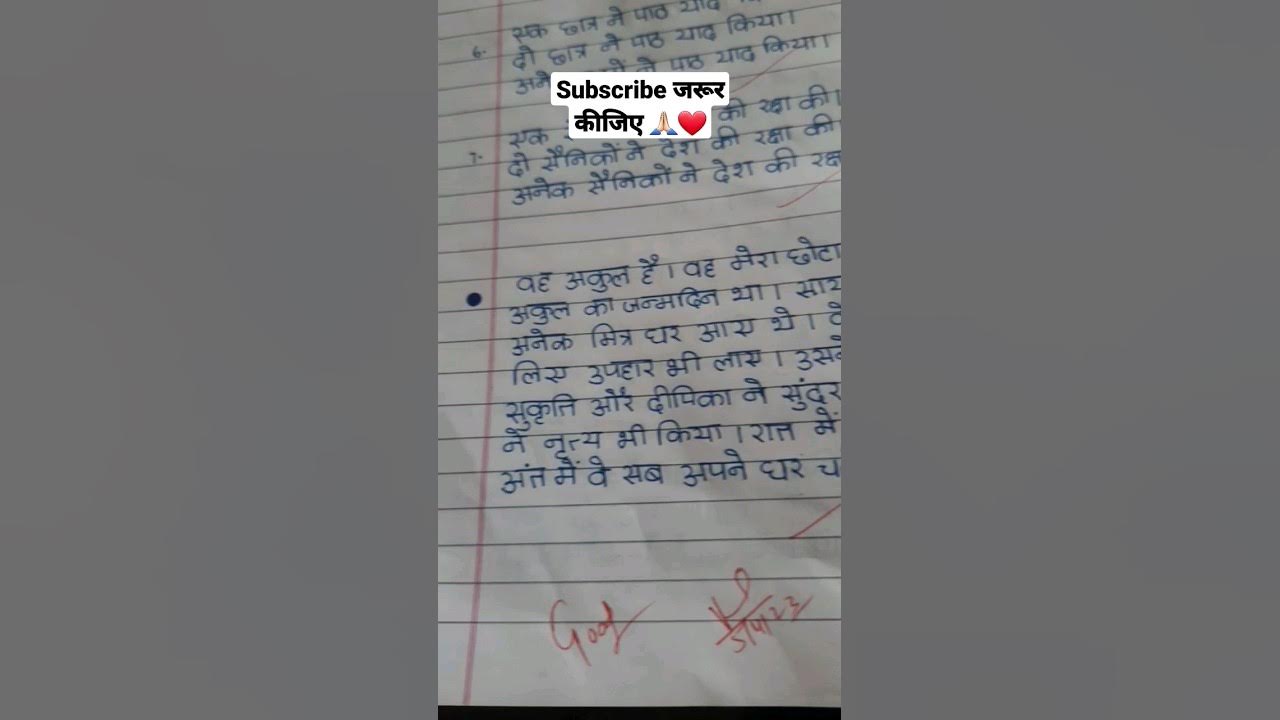 एक छात्र ने पाठ याद
6. दो छात्र ने पाठ याद किया।
ने पाठ याद किया।
Subscribe जरूर
कीजिए 🙏🏻❤️
एक की रक्षा की।
7. दो सैनिकों ने देश की रक्षा की
अनेक सैनिकों ने देश की रक्ष
वह अकुल है। वह मेरा छोटा
अकुल का जन्मदिन था।
अनेक मित्र घर आए थे।
लिए उपहार भी लाए। उसके
सुकृति और दीपिका ने सुंदर
ने नृत्य भी किया। रात में
अंत में वे सब अपने घर च
Good